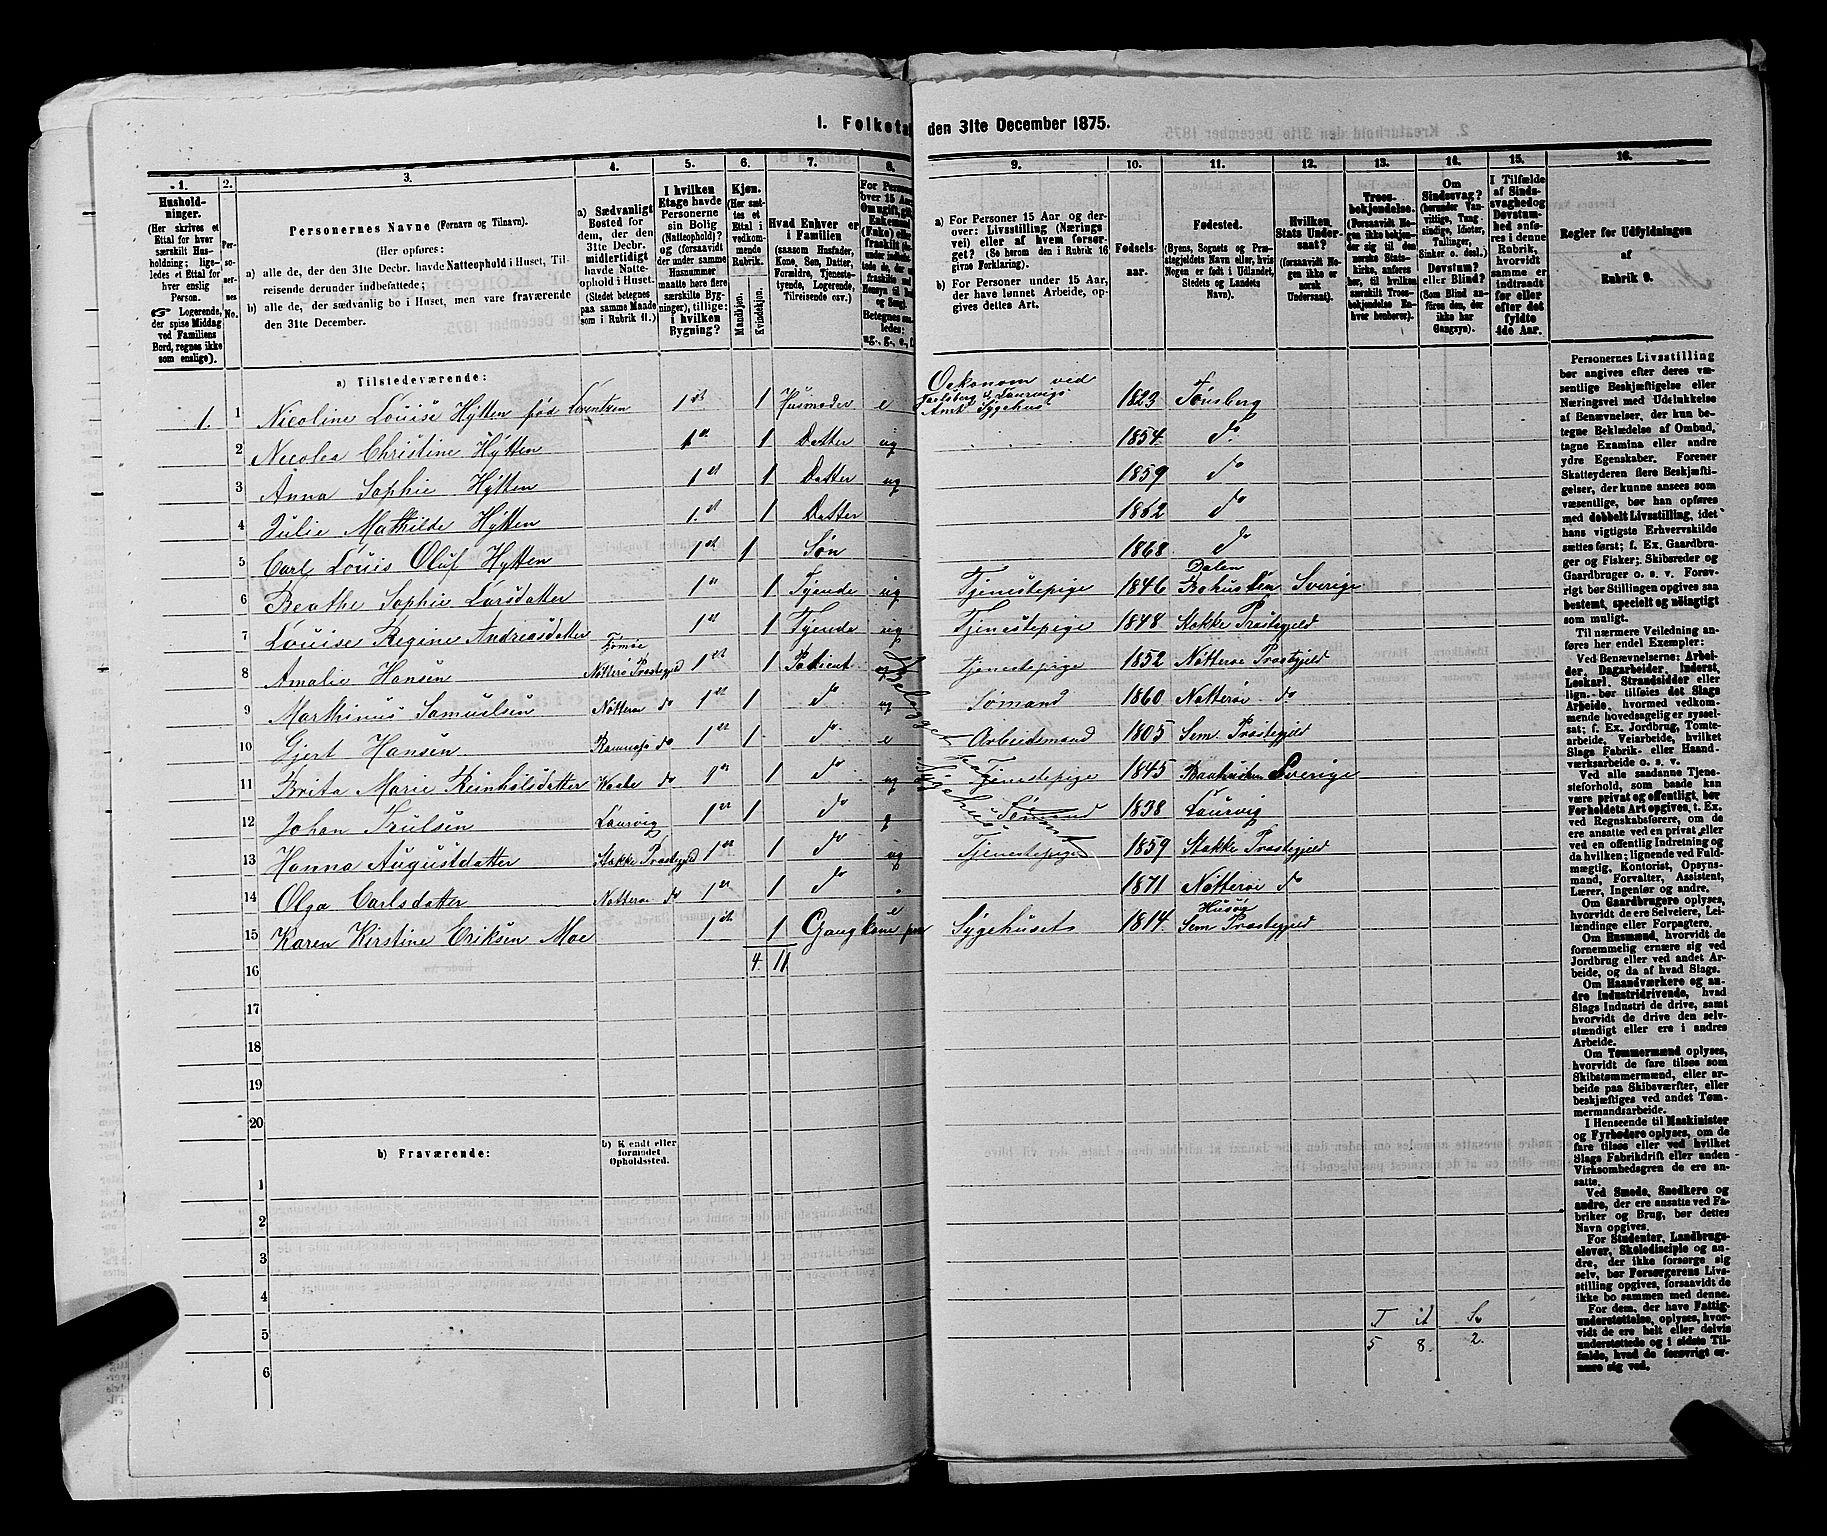 I. Folketal den 31te December 1875.
1. 2. 3. 4. 5. 6. 7. 8. 9. 10. 11. 12. 13. 14. 15. 16.
Hushold-
ninger.
(Her skrives et
Ettal for hver
særskilt Hus-
holdning; lige-
ledes et Ettal for
hver enslig
Person.
☞ Logerende,
der spise Middag
ved Familiens
Bord, regnes ikke
som enslige).
Per-
so-
ner-
nes
No.
Personernes Navne (Fornavn og Tilnavn).
(Her opføres:
a) alle de, der den 31te Decbr. havde Natteophold i Huset, Til-
reisende derunder indbefattede;
b) alle de, der sædvanlig bo i Huset, men vare fraværende
den 31te December.
a) Sædvanligt
Bosted for
dem, der den
31te Decbr.
midlertidigt
havde Natte-
ophold i Huset.
(Stedet betegnes
paa samme Maade
som i Rubrik 11.)
I hvilken
Etage havde
Personerne
sin Bolig
(Natteophold)?
og (forsaavidt
der under samme
Hasnummer
maatte høre flere
særskilte Byg-
ninger), tillige:
i hvilken
Bygning?
Kjøn.
(Her sæt-
tes et
Ettal i
vedkom-
mende
Rubrik.
Mandkjøn.
Kvindekjøn.
Hvad Enhver er
i Familien
(saasom Husfader,
Kone, Søn, Datter,
Forældre, Tjeneste-
tyende, Logerende,
Tilreisende osv.)
For Persone
over 15 Aar
Betegnes saa-
ledes:
ug., g., e., f.
a) For Personer 15 Aar og der-
over: Livsstilling (Nærings
vei) eller af hvem forsør-
get? (Se herom den i Rubrik 16
givne Forklaring).
b) For Personer under 15 Aar,
der have lønnet Arbeide, op-
gives dettes Art.
Fødsels-
aar.
Fødested.
(Byens, Sognets og Præ-
stegjeldets Navn eller, hvis
Nogen er født i Udlandet,
Stedets og Landets
Navn).
Hvilken
Stats Under-
saat?
(forsaavidt No-
gen ikke er
norsk
Undersaat).
Troes-
bekjendelse.
(Forsaavidt No-
gen ikke bekjen-
der sig til den
norske Stats-
kirke, anføres
her, til hvilken
særskilt Troes-
bekjendelse En-
hver henhører).
Om
Sindssvag?
(herunder Van-
vittige, Tung-
sindige, Idioter,
Tullinger,
Sinker o. desl.)
Døvstum?
eller Blind?
(Som Blind an-
føres den, der
ikke har
Gangsyn).
I Tilfælde
af Sinds-
svaghed og
Døvstum-
hed anfø-
res i denne
Rubrik,
hvorvidt
samme er
indtraadt
før eller
efter det
fyldte
4de Aar.
Regler for Udfyldningen
af
Rubrik 9.
a) Tilstedeværende:
1. 1 Nicoline Louise Hytten fød Lorentzen 1st 1 Husmoder e Oekonom ved Jarlsberg & Laurvigs Amt Sygehus 1823 Tønsberg
2 Nicolea Christine Hytten 1st 1 Datter ug 1854 do
3 Anna Sophie Hytten 1st 1 Datter ug 1859 do
4 Julie Mathilde Hytten 1st 1 Datter 1862 do
5 Carl Louis Oluf Hytten 1st 1 Søn 1868 do
6 Beathe Sophie Larsdatter 1" 1 Tyende ug Tjenestepige 1846 Dalen Bohuslen Sverige
7 Louise Regine Andreasdatter 1st 1 Tyende ug Tjenestepige 1848 Stokke Præstegjeld
8 Amalie Hansen Nøtterø Præstgjd 1st 1 Patient ug Tjenestepige 1852 Nøtterøe Præstegjeld
9 Marthinus Samuelsen Nøtterøe do 1st 1 do ug Sømand 1860 Nøtterøe do
10 Gjert Hansen do 1st 1 do e Arbeidsmand 1805 Sem Præstegjeld
11 Brita Marie Reinholsdatter do 1st 1 do ug Tjenestepige 1845 Baahuslen Sverige
12 Johan Trulsen Laurvig 1st 1 do g Sømand 1838 Laurvig
13 Hanna Augustdatter Stokke Præstegjd 1st 1 do ug Tjenestepige 1859 Stokke Præstegjeld
14 Olga Carlsdatter Nøtterøe do 1st 1 do 1871 Nøtterøe do
15 Karen Kirstine Eriksen Moe 1st 1 Gangkone paa e Sygehuset 1814 Husøe Sem Præstegjeld
16 4. 11
17
18
19
20
b) Fraværende:
b) Kjendt eller
formodet
Opholdssted.
1
2
3
4
5
6
T it S
5 8. 2.
Personernes Livsstilling
bør angives efter deres væ-
sentlige Beskjæftigelse eller
Næringsvei med Udelukkelse
af Benævnelser, der kun be-
tegne Beklædelse af Ombud,
tagne Examina eller andre
ydre Egenskaber. Forener
Skatteyderen flere Beskjæfti-
gelser, der kunne ansees som
væsentlige, bør han opføres
med dobbelt Livsstilling, idet
hans vigtigste Erhvervskilde
sættes først; f. Ex. Gaardbru-
ger og Fisker; Skibsreder og
Gaardbruger o. s. v. Forøv-
rigt bør Stillingen opgives saa
bestemt, specielt og nøiagtigt
som muligt.
Til nærmere Veiledning an-
føres her endel Exempler:
Ved Benævnelserne: Arbei-
der, Dagarbeider, Inderst,
Løskarl, Strandsidder eller
lign. bør tilføies det Slags
Arbeide, hvormed vedkom-
mende hovedsagelig er syssel-
sat; f. Ex. Jordbrug, Tomte-
arbeide, Veiarbeide, hvilket
Slags Fabrik- eller Haand-
værksarbeide o. s. v.
Ved alle saadanne Tjene-
steforhold, som baade kan
være privat og offentligt, bør
Forholdets Art opgives, f. Ex.
ved Regnskabsførere, om de
ere ansatte ved en privat eller
ved en offentlig Indretning og
da hvilken; lignende ved Fuld-
mægtig, Kontorist, Opsyns-
mand, Forvalter, Assistent,
Lærer, Ingeniør og andre.
Om Gaardbrugere oplyses,
hvorvidt de ere Selveiere, Lei-
lændinge eller Forpagtere.
Om Husmænd, hvorvidt de
fornemmelig ernære sig ved
Jordbrug eller ved andet Ar-
beide, og da af hvad Slags.
Om Haandværkere og an-
dre Industridrivende, hvad
Slags Industri de drive, samt
hvorvidt de drive den selv-
stændigt eller ere i andres
Arbeide.
Om Tømmermænd oplyses,
hvorvidt de fare tilsøs som
Skibstømmermænd, eller ar-
beide paa Skibsværfter, eller
beskjæftiges ved andet Tøm-
mermandsarbeide.
I Henseende til Maskinister
og Fyrbødere oplyses, om de
fare tilsøs eller ved hvilket
Slags Fabrikdrift eller anden
Virksomhedsgren de ere an-
satte.
Ved Smede, Snedkere og
andre, der ere ansatte ved Fa-
briker og Brug, bør dettes
Navn opgives.
For Studenter, Landbrugs-
elever, Skoledisciple og an-
dre, der ikke forsørge sig
selv, bør Forsørgerens Livs-
stilling opgives, forsaavidt de
ikke bo sammen med denne.
For dem, der have Fattig-
understøttelse, oplyses, hvor-
vidt de ere helt eller delvis
understøttede og i sidste Til-
fælde, hvad de forøvrigt er-
nære sig ved.